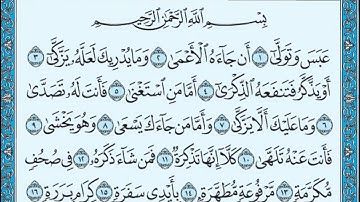 بِسْمِ اللَّهِ الرَّحْمَٰنِ الرَّحِيمِ
عَبَسَ وَتَوَلَّىٰ ١ أَن جَاءَهُ الْأَعْمَىٰ ٢ وَمَا يُدْرِيكَ لَعَلَّهُ يَزَّكَّىٰ ٣
أَوْ يَذَّكَّرُ فَتَنفَعَهُ الذِّكْرَىٰ ٤ أَمَّا مَنِ اسْتَغْنَىٰ ٥ فَأَنتَ لَهُ تَصَدَّىٰ
٦ وَمَا عَلَيْكَ أَلَّا يَزَّكَّىٰ ٧ وَأَمَّا مَن جَاءَكَ يَسْعَىٰ ٨ وَهُوَ يَخْشَىٰ ٩
فَأَنتَ عَنْهُ تَلَهَّىٰ ١٠ كَلَّا إِنَّهَا تَذْكِرَةٌ ١١ فَمَن شَاءَ ذَكَرَهُ ١٢ فِي صُحُفٍ
مُّكَرَّمَةٍ ١٣ مَّرْفُوعَةٍ مُّطَهَّرَةٍ ١٤ بِأَيْدِي سَفَرَةٍ ١٥ كِرَامٍ بَرَرَةٍ ١٦